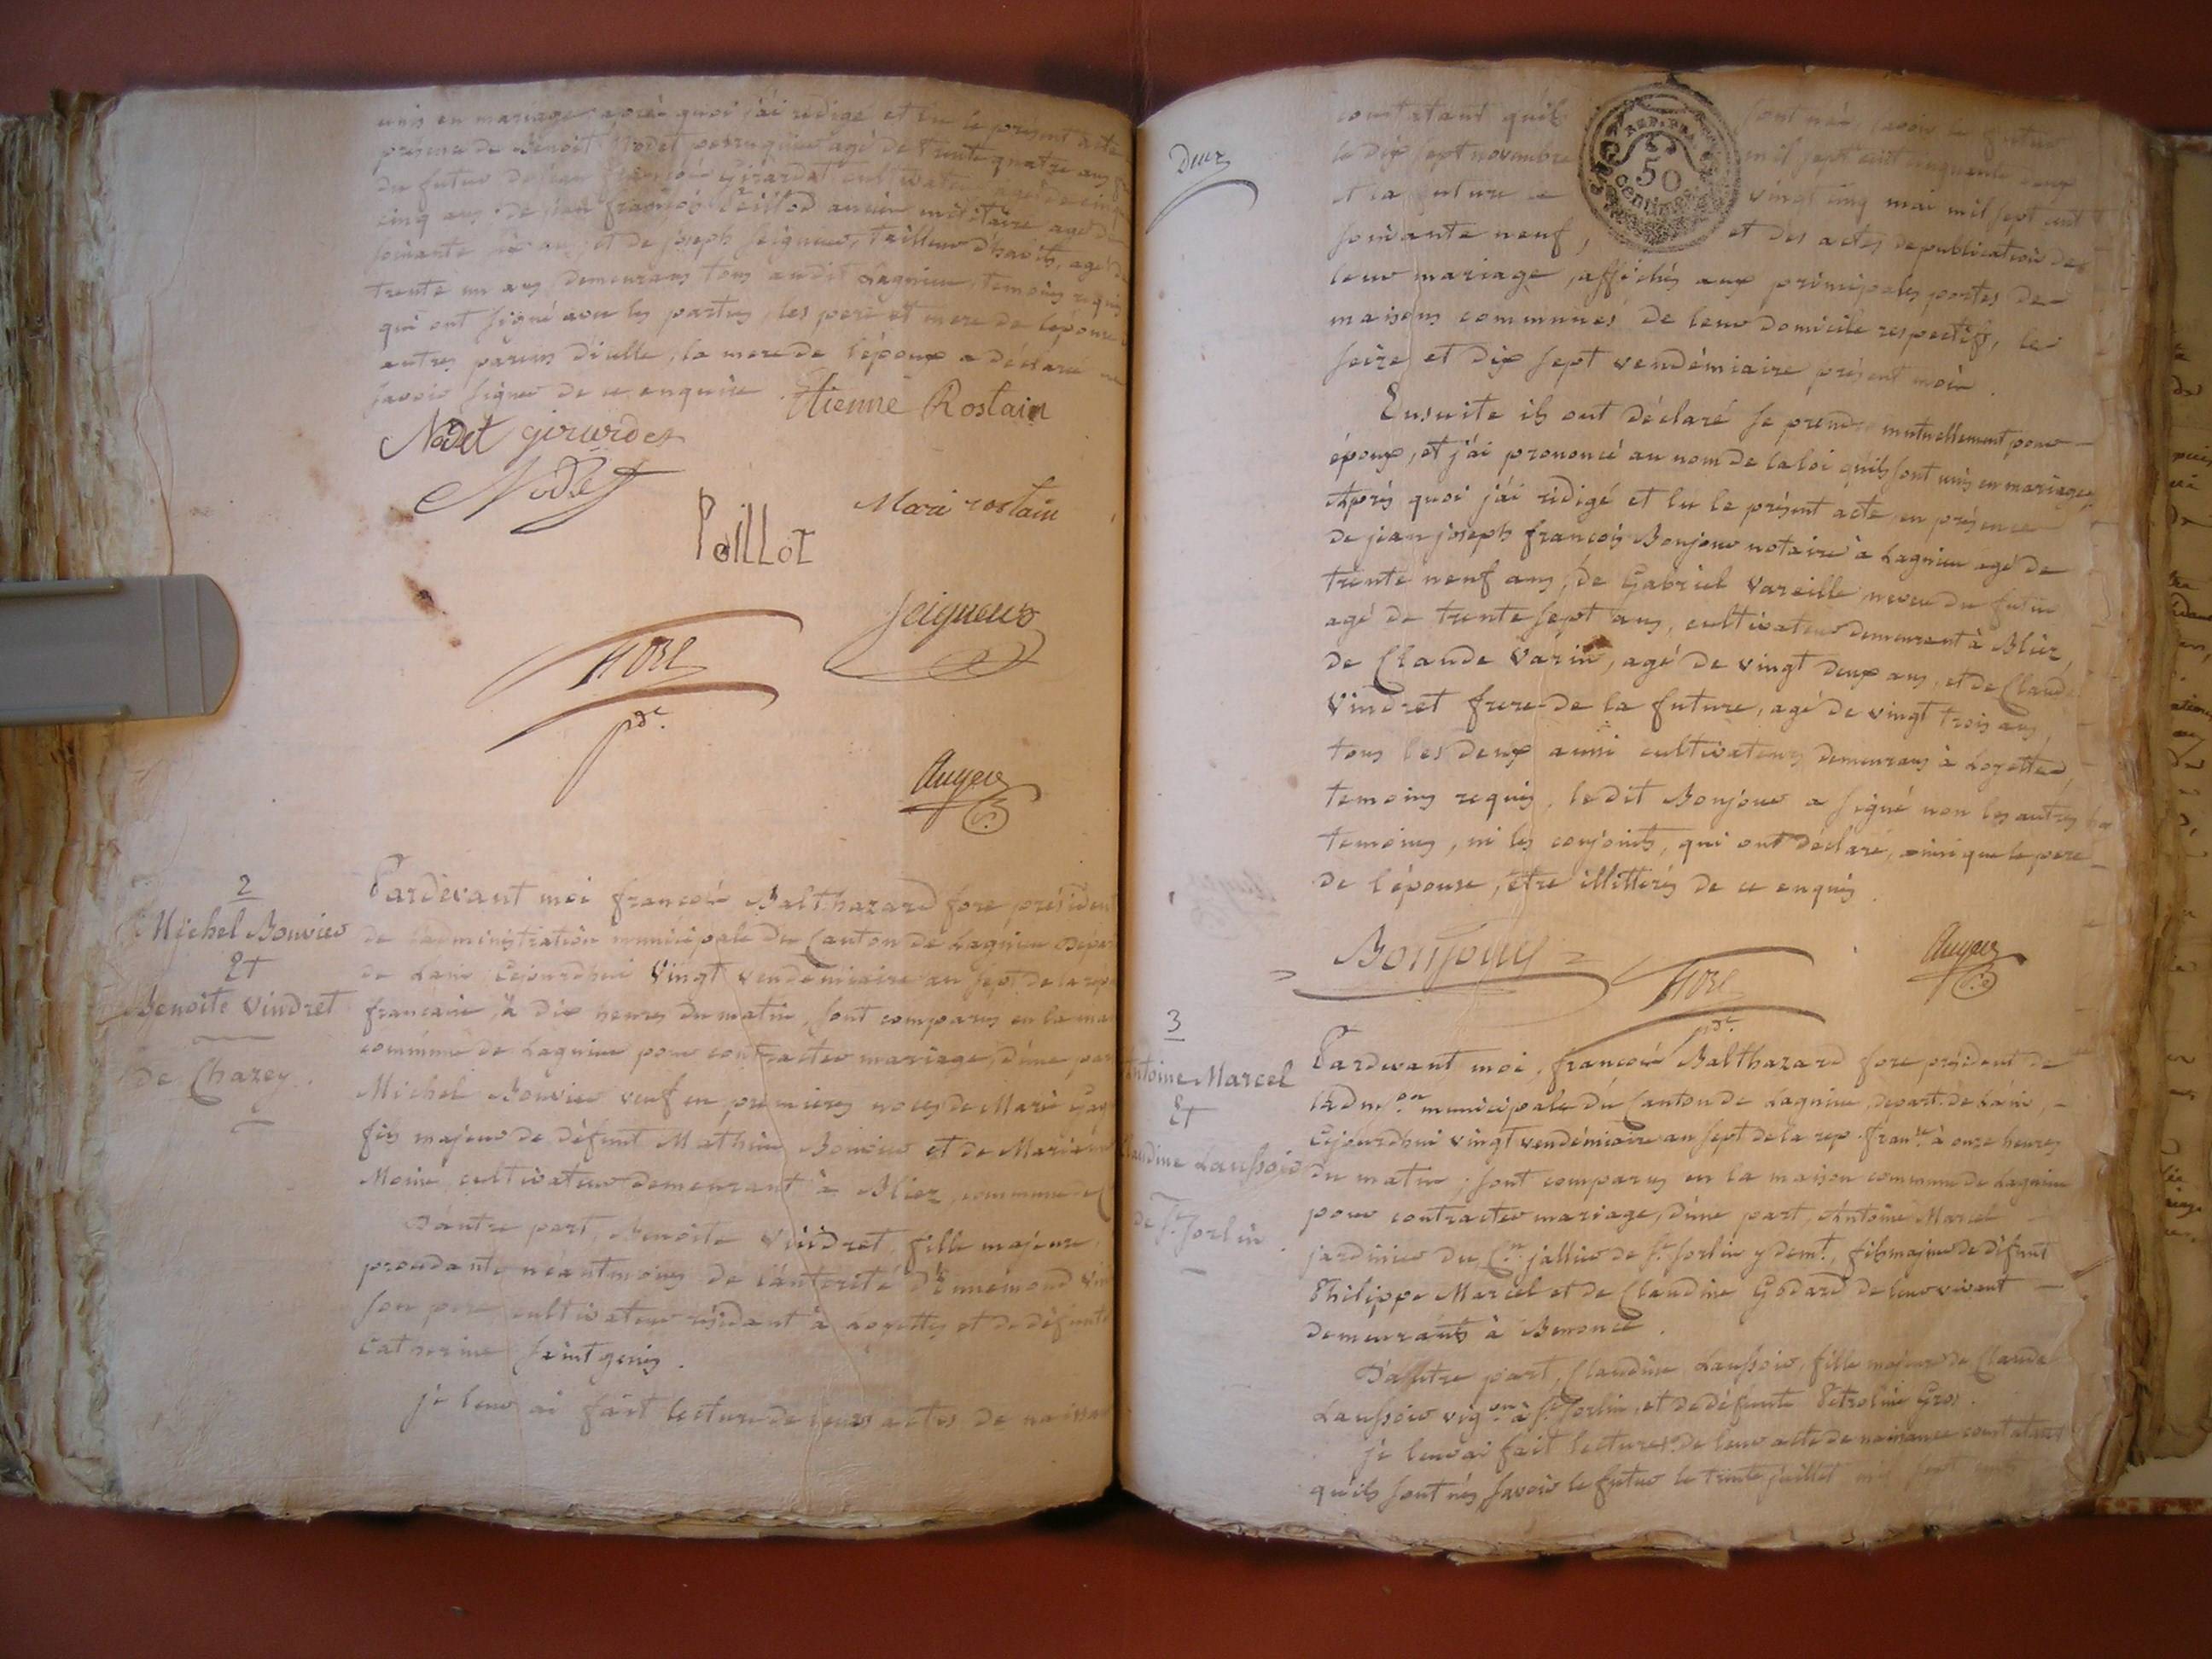 unis en mariage, après quoi j'ai rédigé et lu le présent acte
présence de Benoit Nodet perruquier agé de trente quatre ans
du futur de jean françois Girardet cultivateur agé de cinq
cinq ans. de jean françois Peillod ancien militaire agé de
soixante six ans, et de joseph seigneur, tailleur d'habits, agé de
trente un ans, demeurans tous audit Lagnieu, temoins requis
qui ont signé avec les parties, les pere et mere de l'épouse
autres parens d'icelle, la mere de l'époux a déclaré ne
savoir signer de ce enquise. Etienne Rostain
Nodet girardet
Nodet
Mari rostain
Peillot
seigneur
fore
pdt.
Auger
2
Michel Bouvier
Et
Benoite Vindret
de Chazey.
Pardevant moi françois Balthazard fore président
de l'administration municipale du Canton de Lagnieu dépar
de Lain, Cejourdhui vingt vendémiaire an sept de la rep
francaise, à dix heures du matin, sont comparus en la mai
commune de Lagnieu pour contracter mariage, d'une par
Michel Bouvier veuf en premieres noces de Marie
fils majeur de défunt Mathieu Bouvier et de Marianne
Moine, cultivateur demeurant à Bliez, commune de
D'autre part, Benoite Vindret, fille majeure,
procedante néantmoins de l'autorité d'Ennemond Vin
son pere, cultivateur résidant à Loyettes et de défunte
Catherine saint genis.
je leur ai fait lecture de leurs actes de naissa
Deux
REP. FRA.
50
Centimes
constatant qu'ils sont nés, savoir le futur
le dix sept novembre mil sept cent cinquante deux
et la future le vingt cinq mai mil sept cent
soixante neuf, et des actes de publication de
leur mariage, affichés aux principales portes des
maisons communes de leur domicile respectif, les
seize et dix sept vendémiaire présent mois.
Ensuite ils ont déclaré se prendre mutuellement pour
époux, et j'ai prononcé au nom de la loi qu'ils sont unis en mariage,
Après quoi j'ai rédigé et lu le présent acte, en présence
de jean joseph françois Bonjour notaire à Lagnieu agé de
trente neuf ans, de Gabriel Vareille neveu du futur
agé de trente sept ans, cultivateur demeurant à Bliez,
de Claude Varin, agé de vingt deux ans, et de Claude
Vindret frere de la future, agé de vingt trois ans,
tous les deux aussi cultivateurs demeurans à Loyettes,
temoins requis, ledit Bonjour a signé non les autres
temoins, ni les conjoints, qui ont déclaré, ainsi que le pere
de l'épouse, être illitterés de ce enquis.
Bonjour
fore
pdt.
Auger
3
Antoine Marcel
Et
Claudine Laussoir
de St. Sorlin.
Pardevant moi, françois Balthazard fore président de
l'adm.on municipale du Canton de Lagnieu, depart. de Lain,
Cejourdhui vingt vendémiaire an sept de la rep. franse. à onze heures
du matin; sont comparus en la maison commune de Lagnieu
pour contracter mariage, d'une part, Antoine Marcel
jardinier du Cen. jallier de St. Sorlin y demt., fils majeur de défunt
Philippe Marcel et de Claudine Godard de leur vivant
demeurants à Benonce.
D'autre part, Claudine Laussoir, fille majeure de Claude
Laussoir vigon. à St. Sorlin, et de défunte Petroline Gros.
je leur ai fait lectures de leur acte de naissance constatant
qu'ils sont nés, savoir le futur le trente juillet mil sept cent